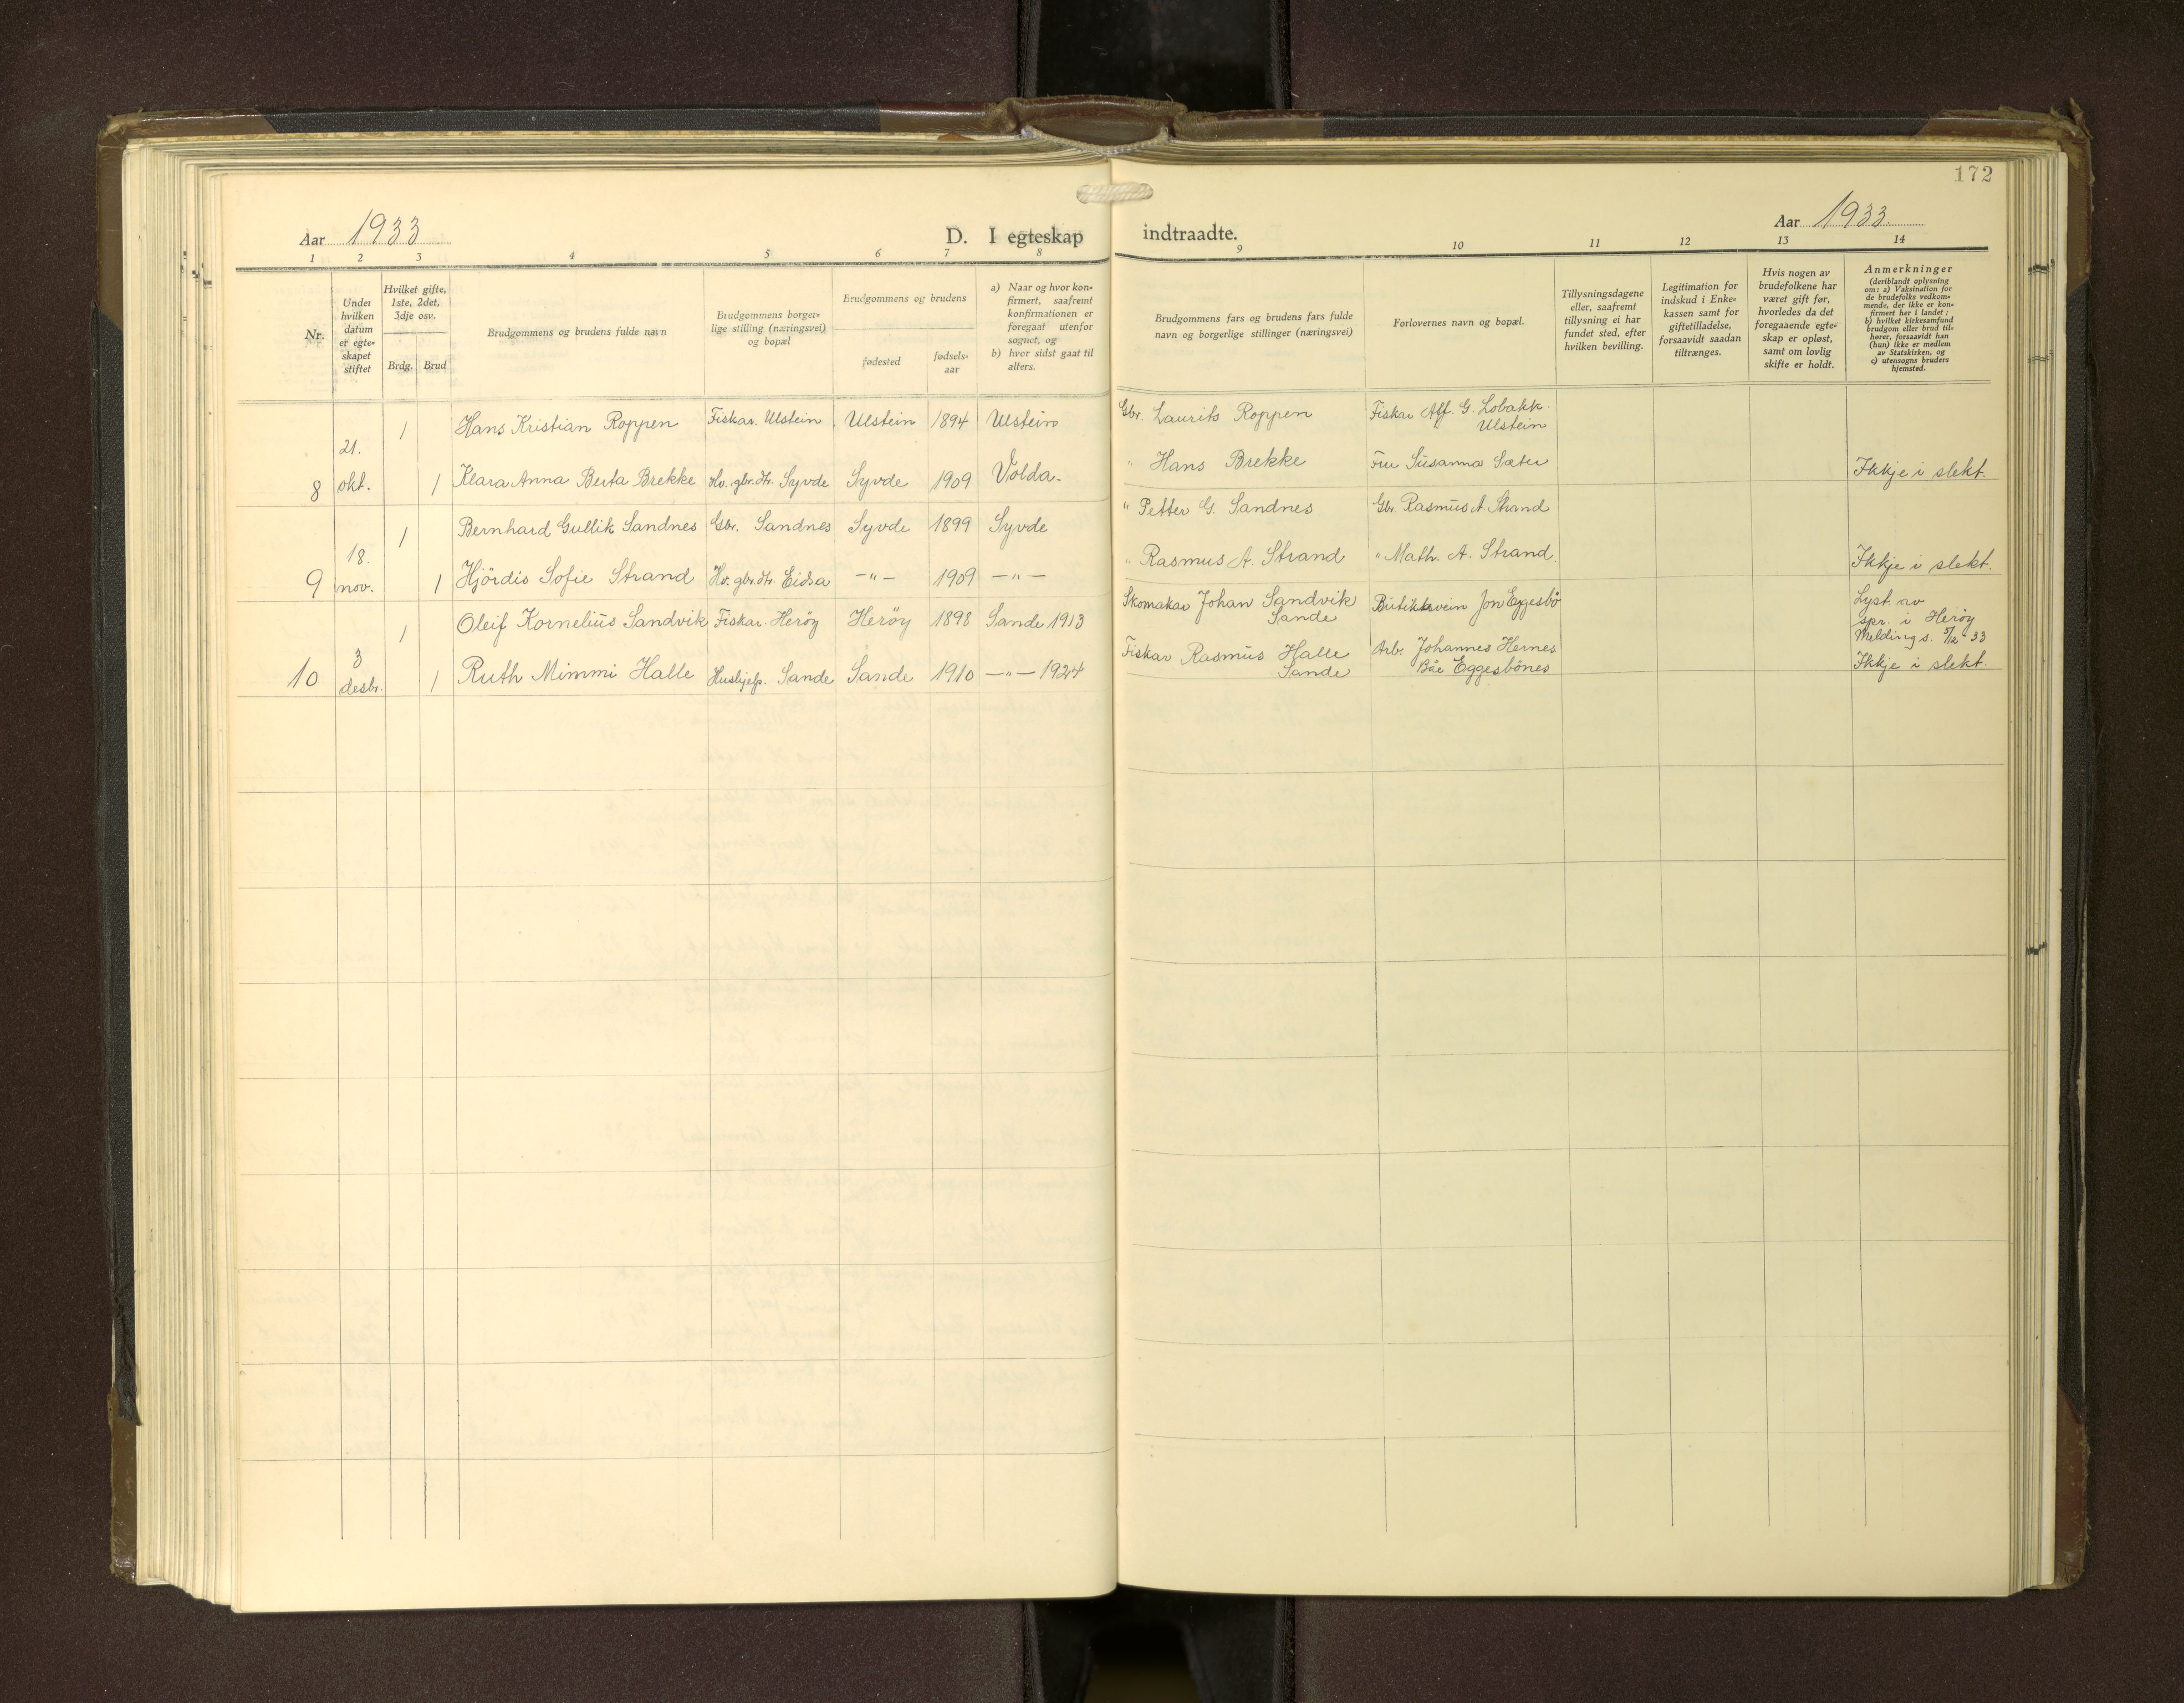 172
Aar 1933
D. I egteskap indtraadte.
Aar 1933.
1 2 3 4 5 6 7 8 9 10 11 12 13 14
Nr.
Under
hvilken
datum
er egte-
skapet
stiftet
Hvilket gifte,
1ste, 2det,
3dje osv.
Brdg. Brud
Brudgommens og brudens fulde navn
Brudgommens borger-
lige stilling (næringsvei)
og bopæl
Brudgommens og brudens
fødested
fødsels-
aar
a) Naar og hvor kon-
firmert, saafremt
konfirmationen er
foregaat utenfor
sognet, og
b) hvor sidst gaat til
alters.
Brudgommens fars og brudens fars fulde
navn og borgerlige stillinger (næringsvei)
Forlovernes navn og bopæl.
Tillysningsdagene
eller, saafremt
tillysning ei har
fundet sted, efter
hvilken bevilling.
Legitimation for
indskud i Enke-
kassen samt for
giftetilladelse,
forsaavidt saadan
tiltrænges.
Hvis nogen av
brudefolkene har
været gift før,
hvorledes da det
foregaaende egte-
skap er opløst,
samt om lovlig
skifte er holdt.
Anmerkninger
(deriblandt oplysning
om: a) Vaksination for
de brudefolks vedkom-
mende, der ikke er kon-
firmert her i landet;
b) hvilket kirkesamfund
brudgom eller brud til-
hører, forsaavidt han
(hun) ikke er medlem
av Statskirken, og
c) utensogns bruders
hjemsted.
1 Hans Kristian Roppen Fiskar. Ulstein Ulstein 1894 Ulstein Gbr. Laurits Roppen Fiskar Alf. G. Lobakk.
Ulstein
8 21. okt. 1 Klara Anna Berta Brekke Hv. gbr.dtr. Syvde Syvde 1909 Volda. " Hans Brekke Fru Susanna Sæter Ikkje i slekt.
1 Bernhard Gullik Sandnes Gbr. Sandnes Syvde 1899 Syvde " Petter G. Sandnes Gbr. Rasmus A. Strand
9 18. nov. 1 Hjördis Sofie Strand Hv. gbr.dtr. Eidsa —"— 1909 —"— " Rasmus A. Strand " Math. A. Strand. Ikkje i slekt.
1 Oleif Kornelius Sandvik Fiskar. Heröy Heröy 1898 Sande 1913 Skomakar Johan Sandvik
Sande
Butikksvein Jon Eggesbö
Lyst av
spr. i Heröy
Melding s. 5/12-33
10 3 desbr. 1 Ruth Mimmi Halle Hushjelp. Sande Sande 1910 —"— 1924 Fiskar Rasmus Halle
Sande
Arb. Johannes Hernes
Båe Eggesbönes
Ikkje i slekt.